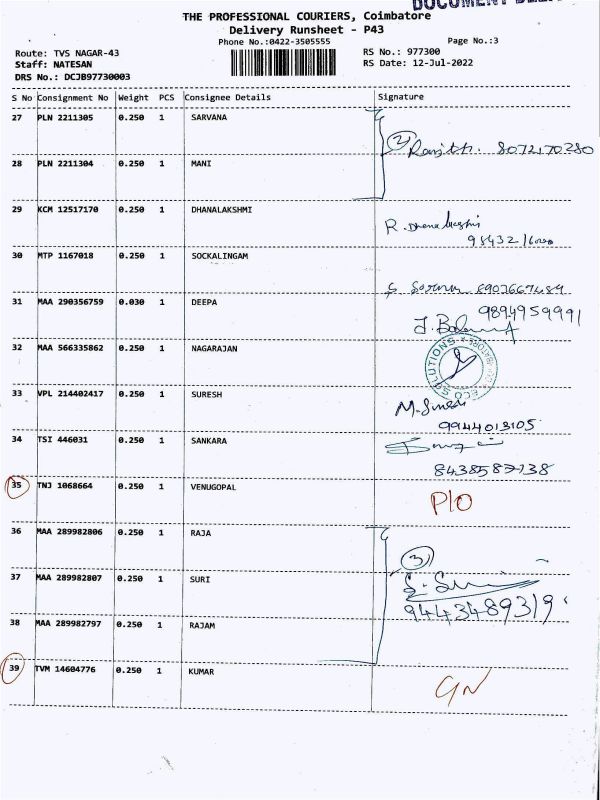 DOCUMENT
THE PROFESSIONAL COURIERS, Coimbatore
Delivery Runsheet - P43
Phone No.:0422-3505555
Page No.:3
Route: TVS NAGAR-43
RS No.: 977300
Staff: NATESAN
RS Date: 12-Jul-2022
DRS No.: DCJB97730003
S No Consignment No Weight PCS Consignee Details Signature
27 PLN 2211305 0.250 1 SARVANA
2 Ranjith. 8072170280
28 PLN 2211304 0.250 1 MANI
29 KCM 12517170 0.250 1 DHANALAKSHMI
R. Dhanalakshmi
30 MTP 1167018 0.250 1 SOCKALINGAM
31 MAA 290356759 0.030 1 DEEPA
9894959991
32 MAA 566335862 0.250 1 NAGARAJAN
SOLUTIONS
33 VPL 214402417 0.250 1 SURESH
M. Suresh
9944013105
34 TSI 446031 0.250 1 SANKARA
8438587738
35 TNJ 1068664 0.250 1 VENUGOPAL
P/O
36 MAA 289982806 0.250 1 RAJA
3
37 MAA 289982807 0.250 1 SURI
9443489319
38 MAA 289982797 0.250 1 RAJAM
39 TVM 14604776 0.250 1 KUMAR
GN